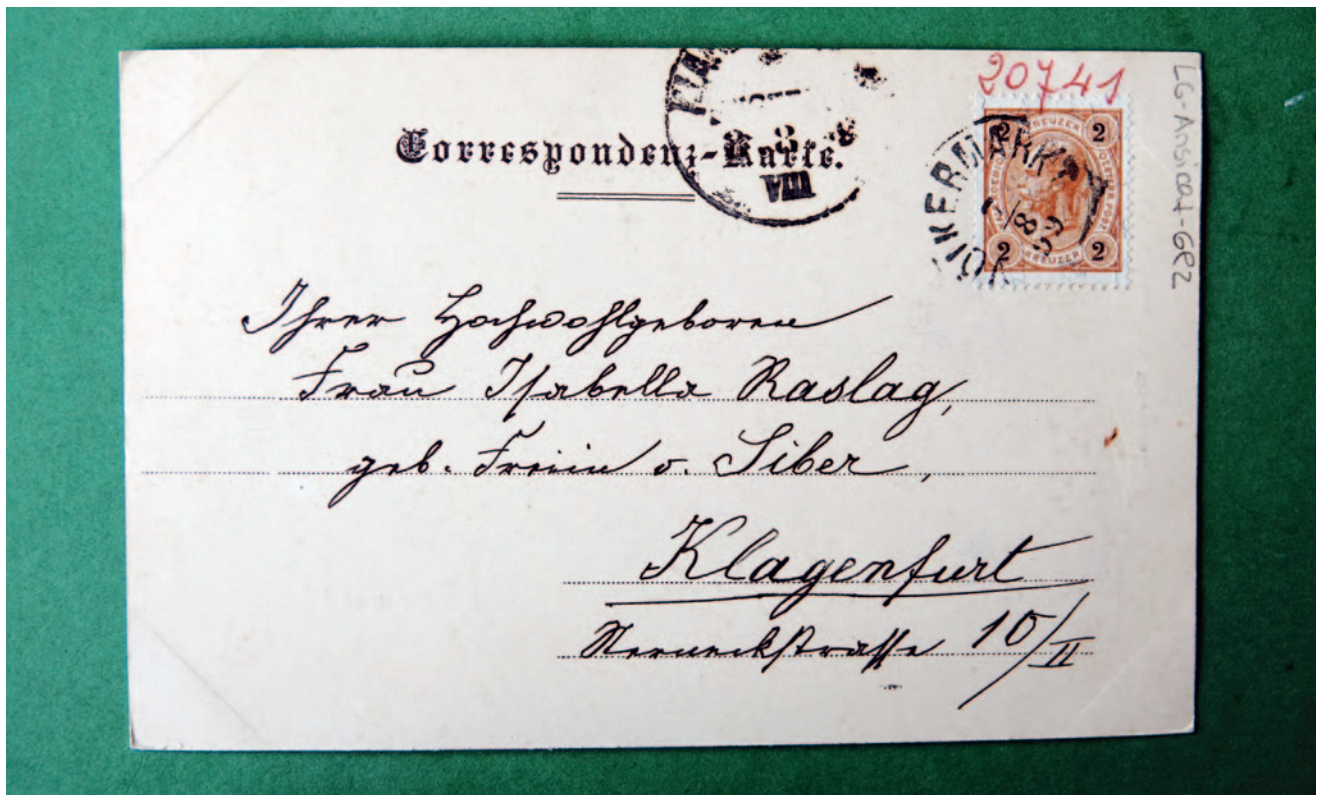 20741
LG-Ansicat-GRZ
Correspondenz-Karte.
8
VIII
VÖLKERMARKT
/8 99
2 KREUZER 2
2 KREUZER 2
Ihrer Hochwohlgeboren
Frau Isabella Raslag,
geb. Freiin v. Siber,
Klagenfurt
Sterneckstrasse 10/II